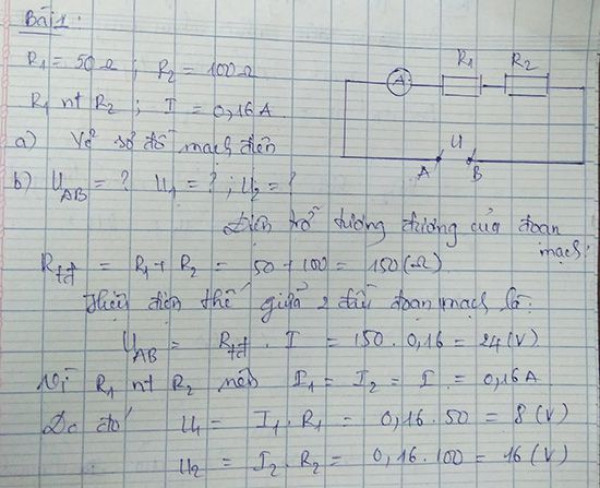 Bài 1.
R1 = 50Ω ; R2 = 100Ω
R1 nt R2 ; I = 0,16A
a) Vẽ sơ đồ mạch điện
A R1 R2
U
A B
b) UAB = ? U1 = ? ; U2 = ?
Điện trở tương đương của đoạn
mạch:
Rtđ = R1 + R2 = 50 + 100 = 150 (Ω)
Hiệu điện thế giữa 2 đầu đoạn mạch là:
UAB = Rtđ . I = 150 . 0,16 = 24 (V)
Vì R1 nt R2 nên I1 = I2 = I = 0,16A
Do đó U1 = I1 . R1 = 0,16 . 50 = 8 (V)
U2 = I2 . R2 = 0,16 . 100 = 16 (V)